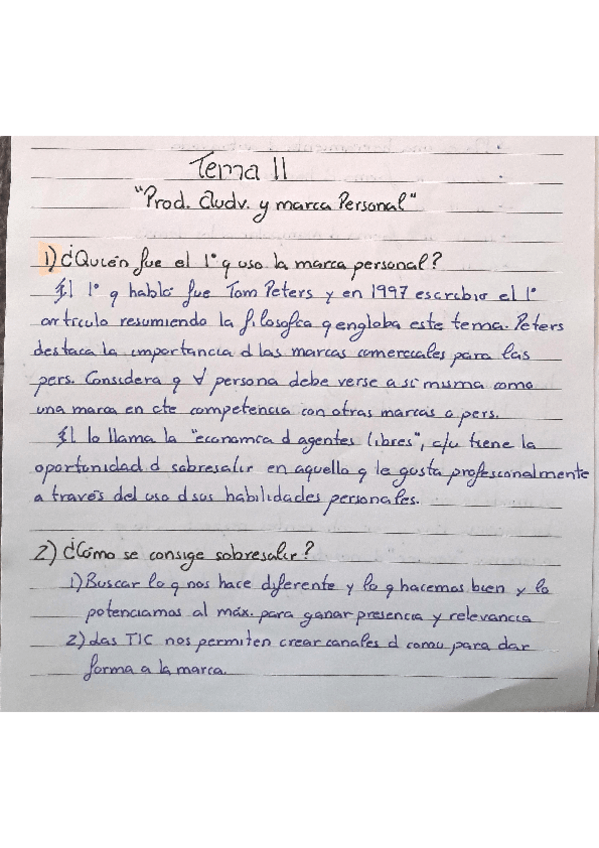 Tema 11
"Prod. Audv. y marca Personal"
1) ¿Quién fue el 1º q uso la marca personal?
El 1º q habló fue Tom Peters y en 1997 escribio el 1º
artículo resumiendo la filosofia q engloba este tema. Peters
destaca la importancia d las marcas comerciales para las
pers. Considera q ∀ persona debe verse a si misma como
una marca en cte competencia con otras marcas o pers.
El lo llama la "economía d agentes libres", c/u tiene la
oportunidad d sobresalir en aquello q le gusta profesionalmente
a través del uso d sus habilidades personales.
2) ¿Cómo se consige sobresalir?
1) Buscar lo q nos hace diferente y lo q hacemos bien y lo
potenciamos al máx. para ganar presencia y relevancia
2) Las TIC nos permiten crear canales d comu para dar
forma a la marca.